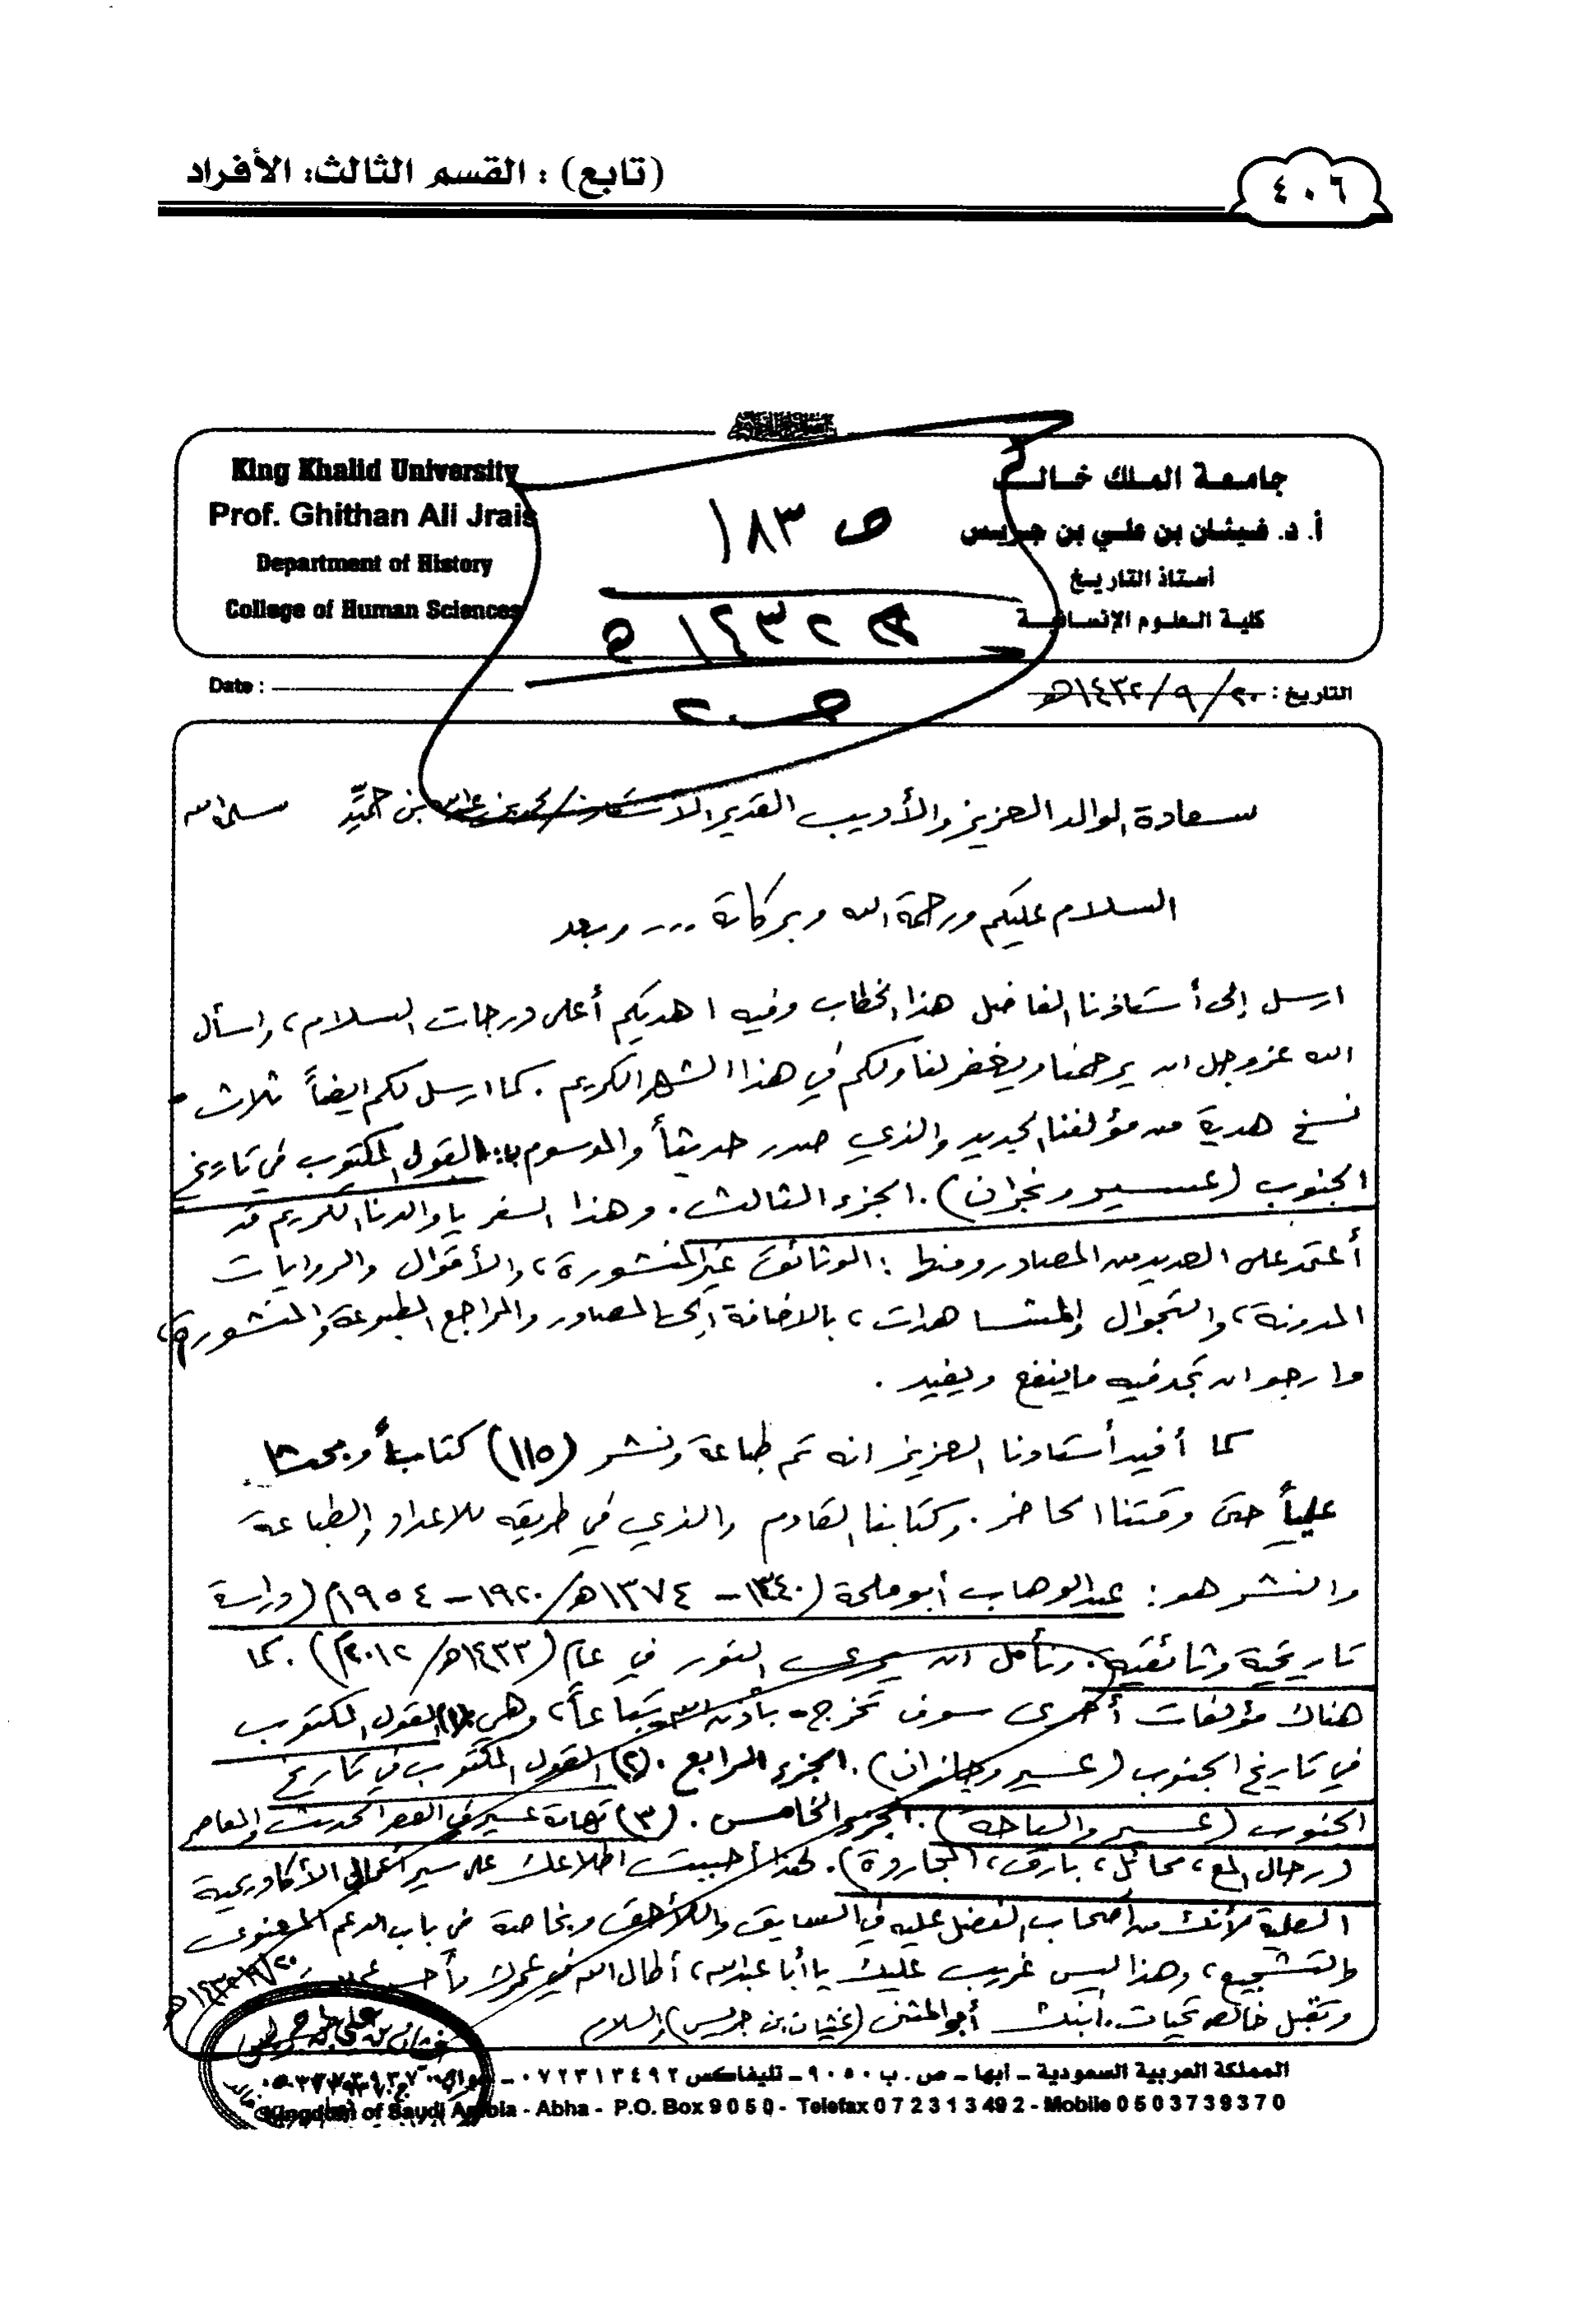 ٤٠٦
(تابع) : القسم الثالث: الأفراد
King Khalid University
Prof. Ghithan Ali Jrais
Department of History
College of Human Sciences
جامعة الملك خالد
أ. د. غيثان بن علي بن جريس
أستاذ التاريخ
كلية العلوم الإنسانية
ص ١٨٣
١٤٣٢ هـ
Date :
التاريخ : ٢٠/ ٩/ ١٤٣٢هـ
سعادة الوالد العزيز والأديب القدير الأستاذ/ محمد بن عبدالله بن حميِّد سلمه الله
السلام عليكم ورحمة الله وبركاته .... وبعد
ارسل إلى أستاذنا الفاضل هذا الخطاب وفيه اهديكم أعلى درجات السلام، واسأل
الله عز وجل ان يرحمنا ويغفر لنا ولكم في هذا الشهر الكريم . كما ارسل لكم ايضاً ثلاث
نسخ هدية من مؤلفنا الجديد والذي صدر حديثاً والموسوم بـ: القول المكتوب في تاريخ
الجنوب (عسير ونجران) . الجزء الثالث . وهذا السفر يا والدنا الكريم قد
أعتمد على العديد من المصادر ومنها : الوثائق غير المنشورة، والأقوال والروايات
المدونة، والتجوال والمشاهدات، بالاضافة إلى المصادر والمراجع المطبوعة والمنشورة،
وارجو ان تجد فيه ما ينفع ويفيد .
كما أفيد أستاذنا العزيز انه تم طباعة ونشر (١١٥) كتاباً وبحثاً
علمياً حتى وقتنا الحاضر . وكتابنا القادم والذي في طريقه للاعداد والطباعة
والنشر هو : عبدالوهاب أبو ملحة (١٣٤٠ – ١٣٧٤هـ/ ١٩٢٠ – ١٩٥٤م) (دراسة
تاريخية وثائقية) . ونأمل ان يرى النور في عام (١٤٣٣هـ/ ٢٠١٢م) . كما
هناك مؤلفات أخرى سوف تخرج بإذن الله تباعاً، وهي (١) القول المكتوب
في تاريخ الجنوب (عسير وجازان) . الجزء الرابع . (٢) القول المكتوب في تاريخ
الجنوب (عسير والباحة) . الجزء الخامس . (٣) تهامة عسير في العصر الحديث والمعاصر
(رجال المع، محائل، بارق، المجاردة) . لهذا أحببت اطلاعك على سير أعمالي الأكاديمية
العلمية لأنك من أصحاب الفضل عليه في السابق واللاحق وبخاصة في باب الدعم المعنوي
والتشجيع، وهذا ليس غريب عليك يا أبا عبدالله، أطال الله في عمرك
وتقبل خالص تحيات ابنك أبو المثنى (غيثان بن جريس) والسلام
٢٠/ ٩/ ١٤٣٢هـ
غيثان بن علي بن جريس
المملكة العربية السعودية – أبها – ص . ب ٩٠٥٠ – تليفاكس ٠٧٢٣١٣٤٩٢ – جوال ٠٥٠٣٧٣٩٣٧٠
Kingdom of Saudi Arabia - Abha - P.O. Box 9050 - Telefax 072313492 - Mobile 0503739370